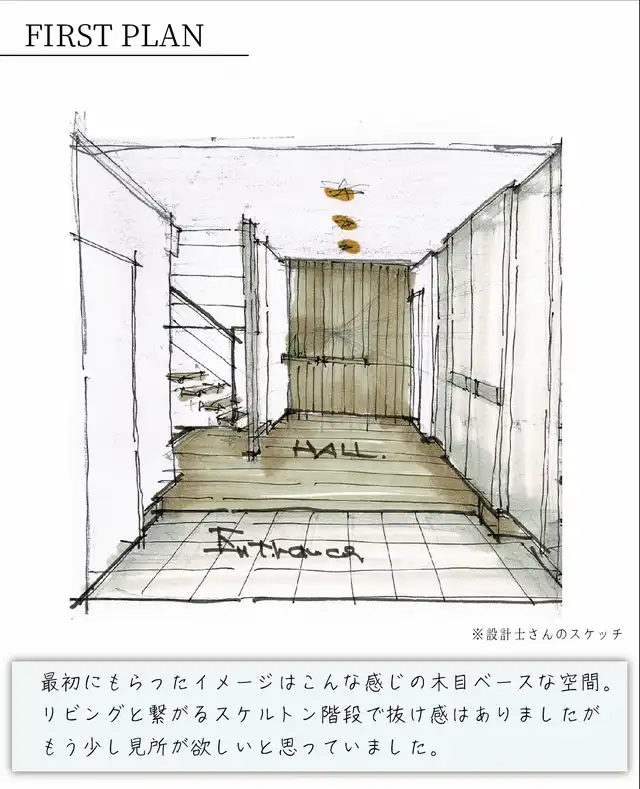 FIRST PLAN
HALL.
Entrance
※設計士さんのスケッチ
最初にもらったイメージはこんな感じの木目ベースな空間。
リビングと繋がるスケルトン階段で抜け感はありましたが
もう少し見所が欲しいと思っていました。